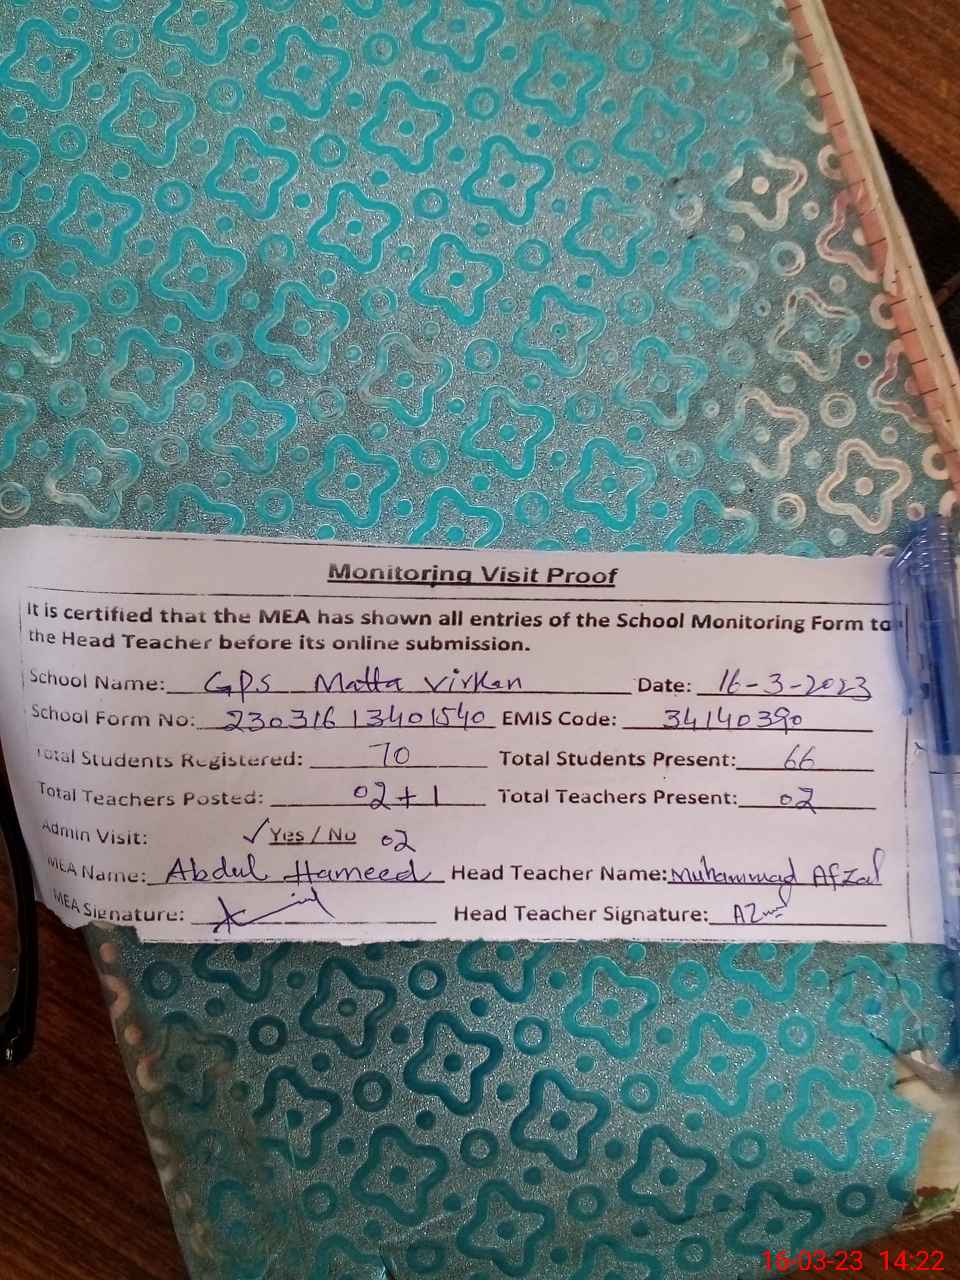 Monitoring Visit Proof
It is certified that the MEA has shown all entries of the School Monitoring Form to
the Head Teacher before its online submission.
School Name: GPS Matta Virken Date: 16-3-2023
School Form No: 23031613401540 EMIS Code: 34140390
Total Students Registered: 70 Total Students Present: 66
Total Teachers Posted: 02+1 Total Teachers Present: 02
Admin Visit: ✓ Yes / No 02
MEA Name: Abdul Hameed Head Teacher Name: Muhammad Afzal
MEA Signature: Head Teacher Signature:
16-03-23 14:22